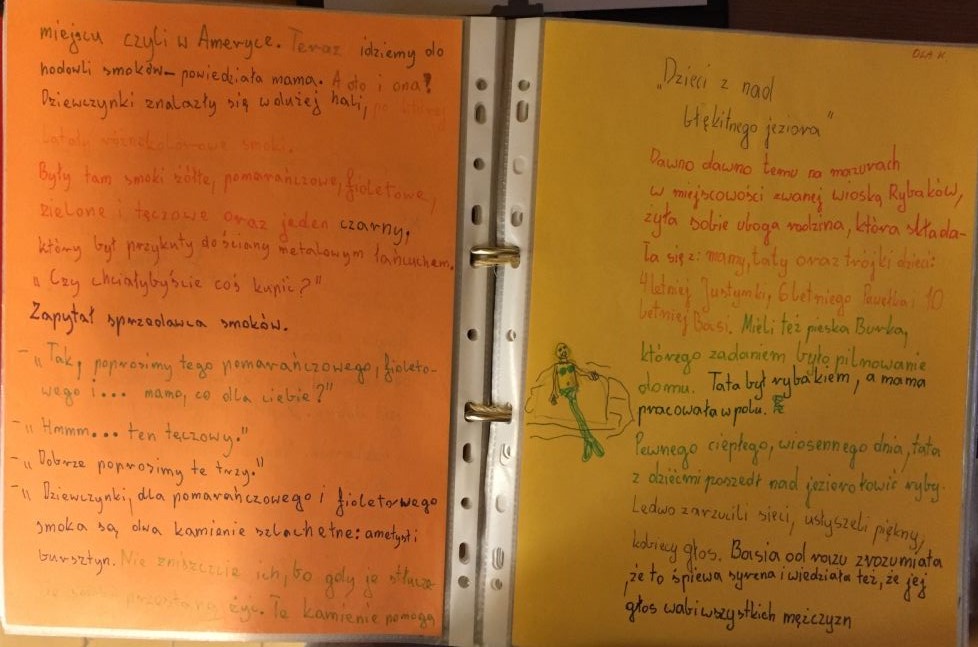 miejscu czyli w Ameryce. Teraz idziemy do
hodowli smoków – powiedziała mama. A oto i ona!
Dziewczynki znalazły się w dużej hali, po której
latały różnokolorowe smoki.
Były tam smoki żółte, pomarańczowe, fioletowe,
zielone i tęczowe oraz jeden czarny,
który był przykuty do ściany metalowym łańcuchem.
„Czy chciałybyście coś kupić?"
Zapytał sprzedawca smoków.
– „Tak, poprosimy tego pomarańczowego, fioleto-
wego i... mamo, co dla ciebie?"
– „Hmmm... ten tęczowy."
– „Dobrze poprosimy te trzy."
– „Dziewczynki, dla pomarańczowego i fioletowego
smoka są dwa kamienie szlachetne: ametyst i
bursztyn. Nie zniszczcie ich, bo gdy je stłucze-
cie smoki przestaną żyć. Te kamienie pomogą
OLA K.
„Dzieci z nad
błękitnego jeziora"
Dawno dawno temu na mazurach
w miejscowości zwanej wioską Rybaków,
żyła sobie uboga rodzina, która składa-
ła się z: mamy, taty oraz trójki dzieci:
4 letniej Justynki, 6 letniego Pawełka i 10
letniej Basi. Mieli też pieska Burka,
którego zadaniem było pilnowanie
domu. Tata był rybakiem, a mama
pracowała w polu.
Pewnego ciepłego, wiosennego dnia, tata
z dziećmi poszedł nad jezioro łowić ryby.
Ledwo zarzucili sieci, usłyszeli piękny,
kobiecy głos. Basia od razu zrozumiała
,że to śpiewa syrena i wiedziała też, że jej
głos wabi wszystkich mężczyzn